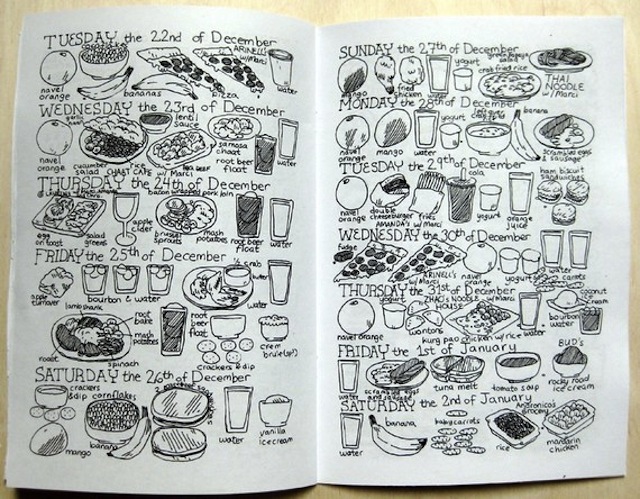 TUESDAY the 22nd of December
ARINELL'S
w/Marci
navel
orange
bananas
pizza
water
WEDNESDAY the 23rd of December
lentil
soup
navel
orange
cucumber
salad
rice
CHAAT CAFE w/ Marci
samosa
chaat
root beer
float
water
THURSDAY the 24th of December
egg
on toast
salad
greens
apple
cider
brussel
sprouts
mash
potatoes
root beer
float
water
FRIDAY the 25th of December
apple
turnover
bourbon & water
crab
butter
water
lamb shank
root
bake
mash
potatoes
roast
spinach
root
beer
float
crackers & dip
crem
brule(sp?)
SATURDAY the 26th of December
crackers
& dip
cornflakes
mango
banana
water
vanilla
ice cream
SUNDAY the 27th of December
green papaya
salad
mango
fried
chicken
water
yogurt
crab fried rice
THAI
NOODLE
w/Marci
MONDAY the 28th of December
navel
orange
mango
water
yogurt
banana
scrambled eggs
& sausage
TUESDAY the 29th of December
navel
orange
double
cheeseburger
fries
AMANDA'S w/ Marci
cola
yogurt
orange
juice
ham biscuit
sandwiches
WEDNESDAY the 30th of December
fudge
ARINELL'S
w/ Marci
navel
orange
yogurt
water
carrots
THURSDAY the 31st of December
navel orange
yogurt
wontons
ZHAO'S NOODLE
HOUSE
w/ Marci
kung pao chicken w/rice
water
bourbon
water
coconut
cream
FRIDAY the 1st of January
water
scrambled eggs
and sausage
tuna melt
tomato soup
BUD'S
rocky road
ice cream
SATURDAY the 2nd of January
water
banana
baby carrots
rice
Andronico's
grocery
mandarin
chicken